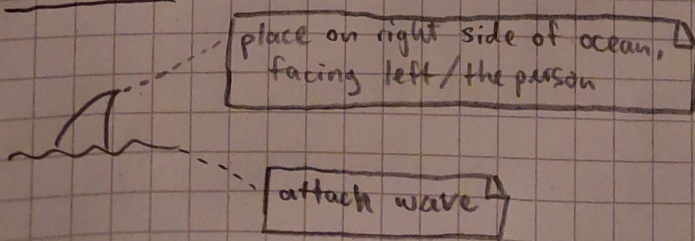 place on right side of ocean,
facing left/the person
attach wave